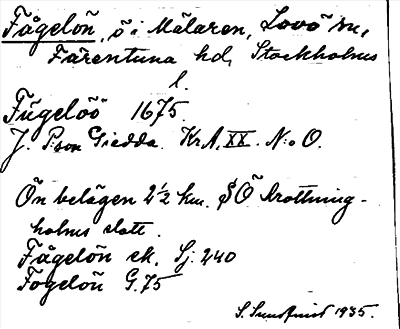 Fågelön, ö i Mälaren, Lovö sn,
Färentuna hd, Stockholms
l.
Fügelöö 1675.
J. Pson Giedda. Kr.A. XX. N:o O.
Ön belägen 2 1/2 km. SÖ Drottning-
holms slott.
Fågelön ek. Sj. 240
Fogelön G. 75
S. Sundquist 1935.